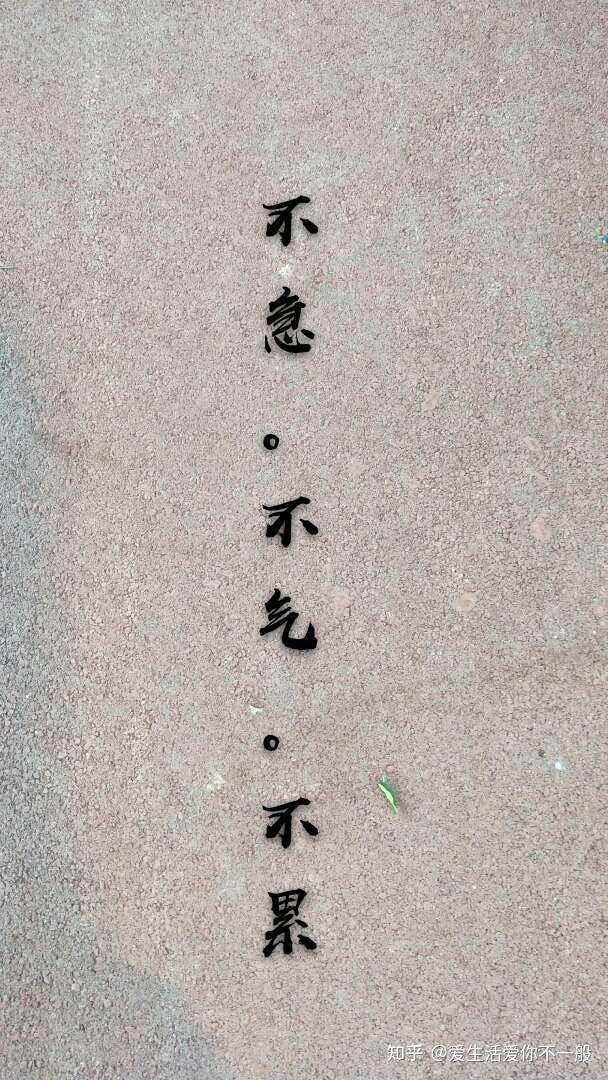 不急。不气。不累
知乎 @爱生活爱你不一般